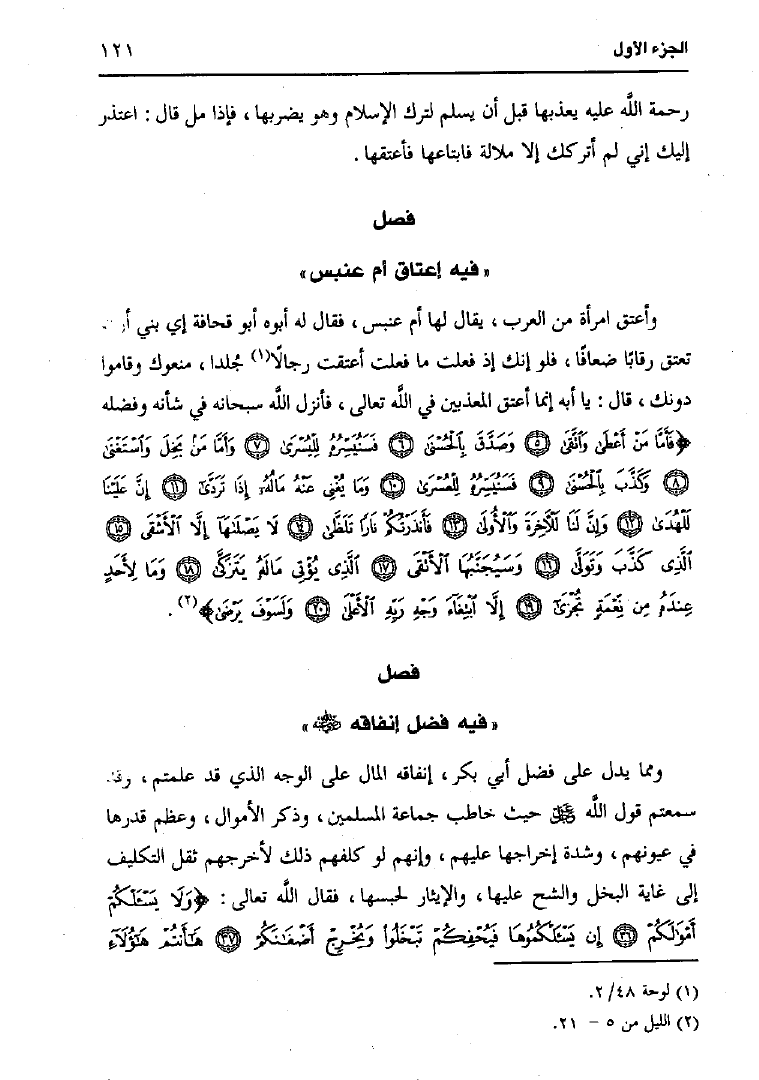 الجزء الأول ١٢١
رحمة الله عليه يعذبها قبل أن يسلم لترك الإسلام وهو يضربها ، فإذا مل قال : اعتذر
إليك إني لم أتركك إلا ملالة فابتاعها فأعتقها .
فصل
« فيه إعتاق أم عنبس »
وأعتق امرأة من العرب ، يقال لها أم عنبس ، فقال له أبوه أبو قحافة إي بني
تعتق رقابًا ضعافًا ، فلو إنك إذ فعلت ما فعلت أعتقت رجالًا(١) جُلدا ، منعوك وقاموا
دونك ، قال : يا أبه إنما أعتق المعذبين في الله تعالى ، فأنزل الله سبحانه في شأنه وفضله
﴿فَأَمَّا مَنْ أَعْطَىٰ وَٱتَّقَىٰ ۝٥ وَصَدَّقَ بِٱلْحُسْنَىٰ ۝٦ فَسَنُيَسِّرُهُۥ لِلْيُسْرَىٰ ۝٧ وَأَمَّا مَنۢ بَخِلَ وَٱسْتَغْنَىٰ
۝٨ وَكَذَّبَ بِٱلْحُسْنَىٰ ۝٩ فَسَنُيَسِّرُهُۥ لِلْعُسْرَىٰ ۝١٠ وَمَا يُغْنِى عَنْهُ مَالُهُۥٓ إِذَا تَرَدَّىٰٓ ۝١١ إِنَّ عَلَيْنَا
لَلْهُدَىٰ ۝١٢ وَإِنَّ لَنَا لَلْءَاخِرَةَ وَٱلْأُولَىٰ ۝١٣ فَأَنذَرْتُكُمْ نَارًا تَلَظَّىٰ ۝١٤ لَا يَصْلَىٰهَآ إِلَّا ٱلْأَشْقَى ۝١٥
ٱلَّذِى كَذَّبَ وَتَوَلَّىٰ ۝١٦ وَسَيُجَنَّبُهَا ٱلْأَتْقَى ۝١٧ ٱلَّذِى يُؤْتِى مَالَهُۥ يَتَزَكَّىٰ ۝١٨ وَمَا لِأَحَدٍ
عِندَهُۥ مِن نِّعْمَةٍ تُجْزَىٰٓ ۝١٩ إِلَّا ٱبْتِغَآءَ وَجْهِ رَبِّهِ ٱلْأَعْلَىٰ ۝٢٠ وَلَسَوْفَ يَرْضَىٰ﴾(٢) .
فصل
« فيه فضل إنفاقه رضي الله عنه »
ومما يدل على فضل أبي بكر ، إنفاقه المال على الوجه الذي قد علمتم ،
سمعتم قول الله ﷿ حيث خاطب جماعة المسلمين ، وذكر الأموال ، وعظم قدرها
في عيونهم ، وشدة إخراجها عليهم ، وإنهم لو كلفهم ذلك لأخرجهم ثقل التكليف
إلى غاية البخل والشح عليها ، والإيثار لحبسها ، فقال الله تعالى : ﴿وَلَا يَسْـَٔلْكُمْ
أَمْوَٰلَكُمْ ۝٣٦ إِن يَسْـَٔلْكُمُوهَا فَيُحْفِكُمْ تَبْخَلُوا۟ وَيُخْرِجْ أَضْغَٰنَكُمْ ۝٣٧ هَٰٓأَنتُمْ هَٰٓؤُلَآءِ
(١) لوحة ٢/٤٨.
(٢) الليل من ٥ - ٢١.